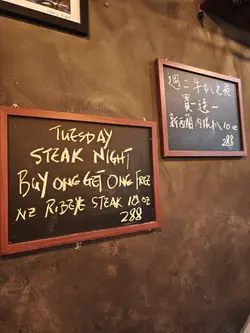 TUESDAY
STEAK NIGHT
BUY ONE GET ONE FREE
NZ RIBEYE STEAK 10 OZ
288
週二牛扒之夜
買一送一
新西蘭肉眼扒10oz
288